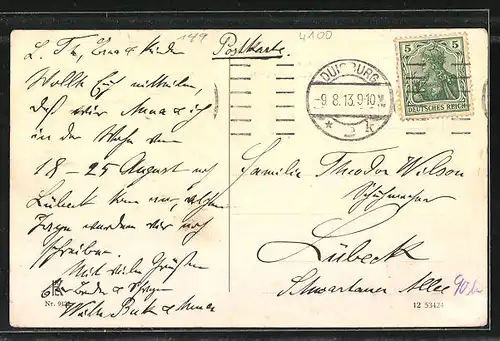 L. Th, Erna & Kinder
Wollte Euch mitteilen,
daß wir Anna & ich
in der Woche vom
18 – 25 August nach
Lübeck kommen, welchen
Tagen werden wir noch
schreiben.
Mit vielen Grüßen
& Anna
Nr.
149
4100
Postkarte.
DUISBURG
-9.8.13.9-10V.
5 5
DEUTSCHES REICH
Familie Theodor Wilson
Schuhmacher
Lübeck
Schwartauer Allee 90b
12 53424